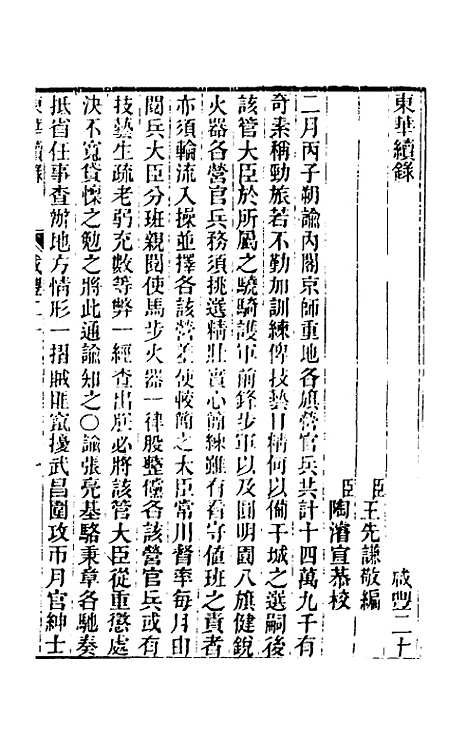 東華續錄
咸豐二十
臣王先謙敬編
臣陶濬宣恭校
二月丙子朔諭內閣京師重地各旗營官兵共計十四萬九千有
奇素稱勁旅若不勤加訓練俾技藝日精何以備干城之選嗣後
該管大臣於所屬之驍騎護軍前鋒步軍以及圓明園八旗健銳
火器各營官兵務須挑選精壯實心簡練雖有看守值班之責者
亦須輪流入操並擇各該營差使較簡之大臣常川督率每月由
閱兵大臣分班親閱使馬步火器一律殷整儻各該營官兵或有
技藝生疏老弱充數等弊一經查出朕必將該管大臣從重懲處
決不寬貸懍之勉之將此通諭知之〇諭張亮基駱秉章各馳奏
抵省任事查辦地方情形一摺賊匪竄擾武昌圍攻帀月官紳士
東華續錄
咸豐二十
一